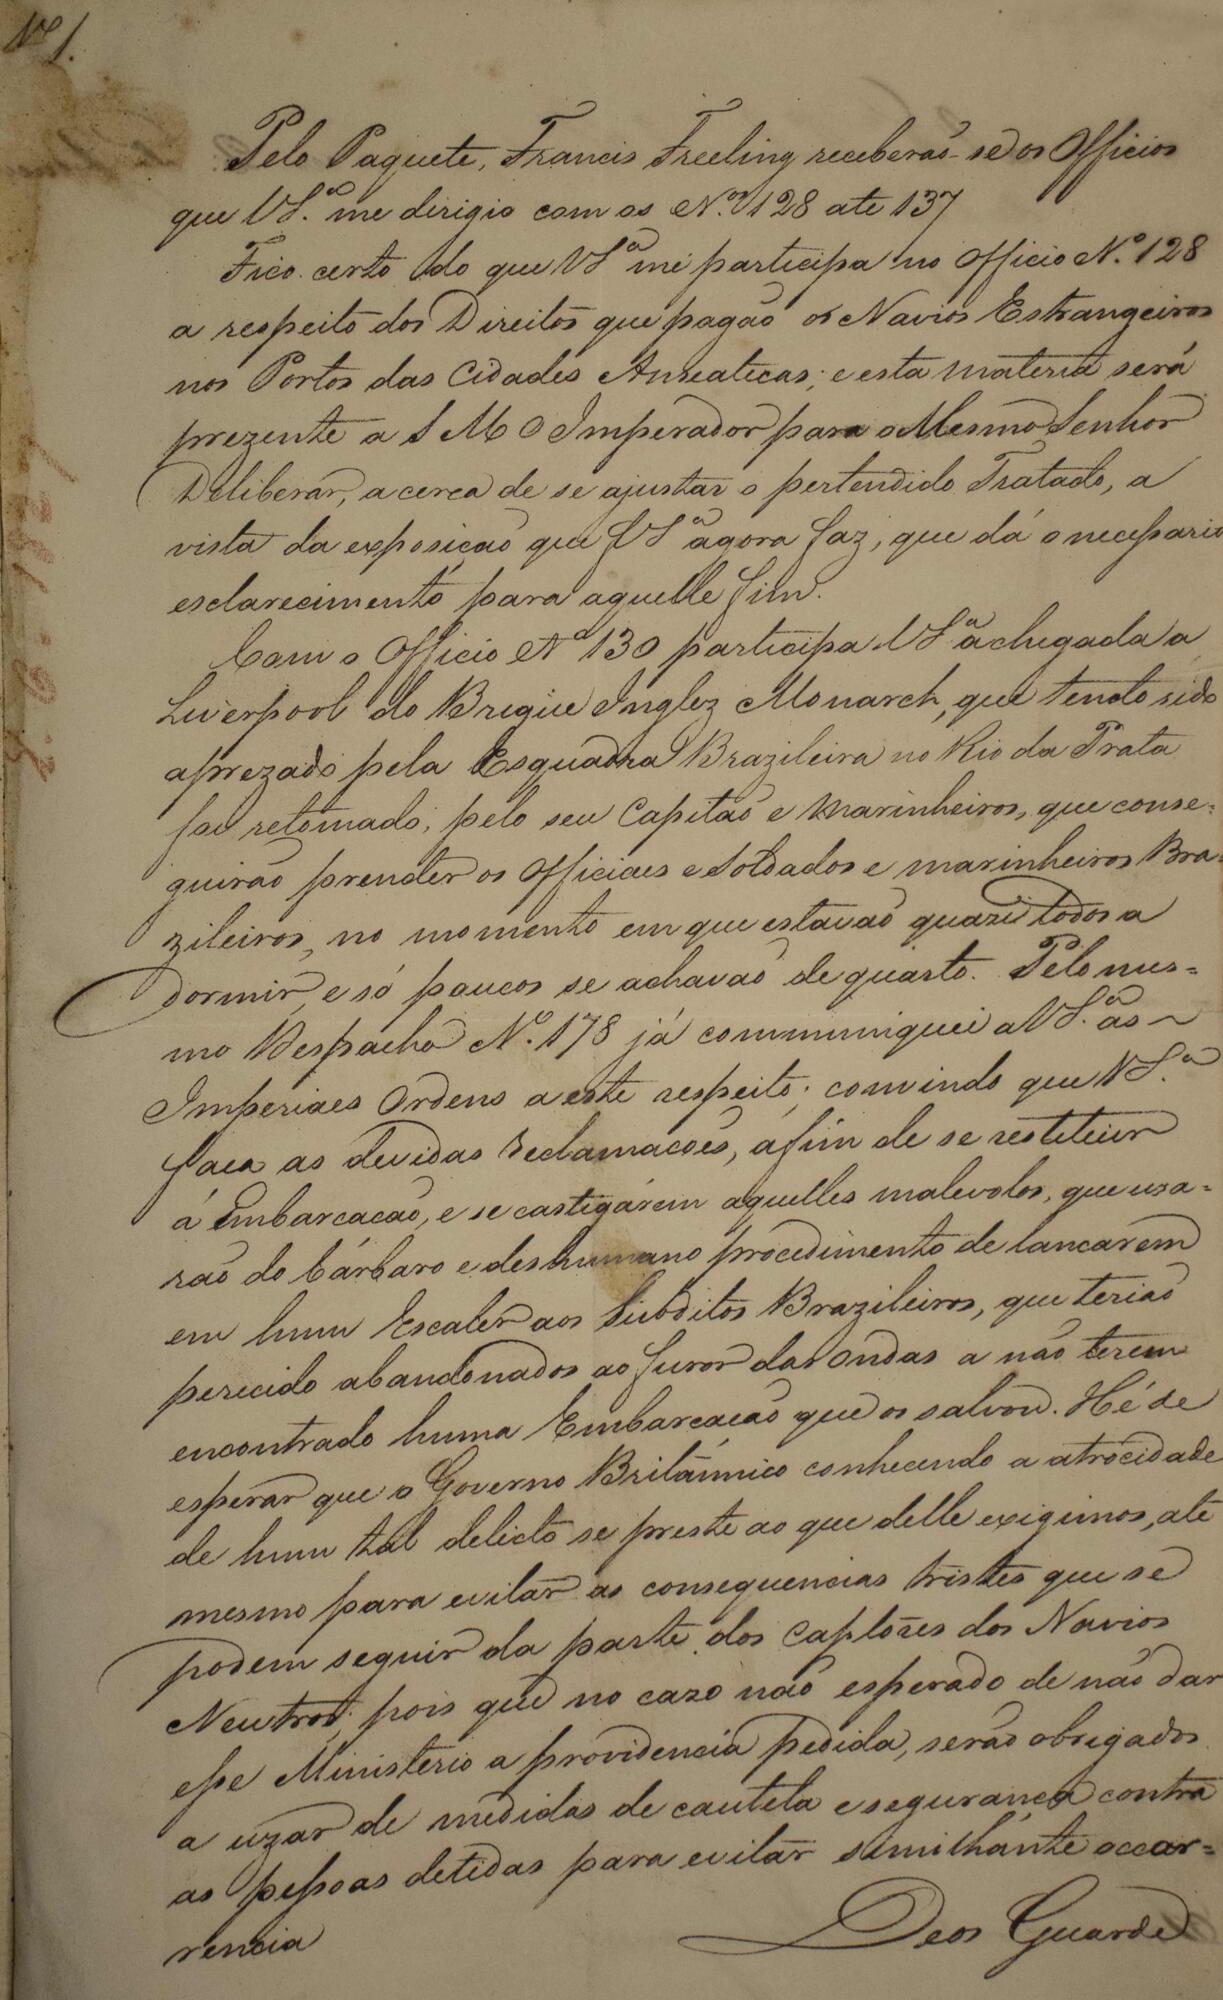 Nº 1.
Pelo Paquete, Francis Freeling receberaõ-se os Officios
que VSª me dirigio com os Nos 128 ate 137
Fico certo do que VSª me participa no Officio Nº 128
a respeito dos Direitos que pagaõ os Navios Estrangeiros
nos Portos das Cidades Anseaticas; e esta materia será
prezente a S M O Imperador para o Mesmo Senhor
Deliberar, a cerca de se ajustar o pertendido Tratado, a
vista da exposiçaõ que VSª agora faz, que dá o necessario
esclarecimento para aquelle fim.
Com o Officio Nº 130 participa VSª a chegada a
Liverpool do Brigue Inglez Monarch, que tendo sido
aprezado pela Esquadra Brazileira no Rio da Prata
foi retomado, pelo seu Capitaõ e marinheiros, que conse-
guiraõ prender os Officiaes e Soldados e marinheiros Bra-
zileiros, no momento em que estavaõ quazi todos a
dormir, e só poucos se achavaõ de quarto. Pelo meu
mo Despacho Nº. 178 já communiquei a VSª. as
Imperiaes Ordens a este respeito; convindo que VSª.
faça as devidas reclamacões, afim de se restituir
á Embarcacaõ, e se castigárem aquelles malevolos, que uza-
raõ do bárbaro e deshumano procedimento de lancarem
em hum Escaler aos Subditos Brazileiros, que teriaõ
perecido abandonados ao furor das ondas a naõ terem
encontrado huma Embarcacaõ que os salvou. Hé de
esperar que o Governo Britânnico conhecendo a atrocidade
de hum tal delicto se preste ao que delle exigimos, ate
mesmo para evitar as consequencias tristes que se
podem seguir da parte dos Captores dos Navios
Neutros; pois que no cazo naõ esperado de naõ dar
esse Ministerio a providencia pedida, seraõ obrigados
a uzar de medidas de cautela e seguranca contra
as pessoas detidas para evitar similhánte occor-
rencia
Deos Guarde